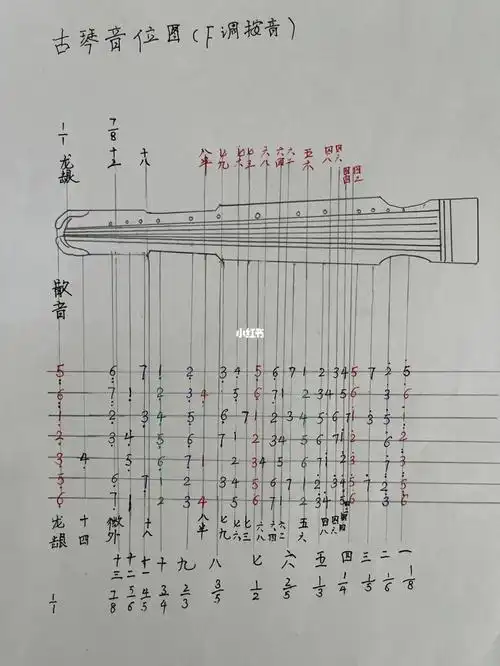 古琴音位图(F调按音)
1/1 7/8
龙龈 十三 十八 八半 七九 七六 七三 六八 六四 六二 五六 四八 四六
散音
小红书
5 6 7 1 2 3 4 5 6 7 1 2 3 4 5 7 2 5
6 7 1 2 3 4 5 6 7 1 2 3 4 5 6 3 6
2 3 4 5 6 7 1
2 3 4 5 6 7 1 2 3 4 5 6 7 1 2 6 2
3 4 5 6 7 1 2 3 4 5 6 7 1 2 3 7 3
5 6 7 1 2 3 4 5 6 7 1 2 3 4 5 7 2 5
6 7 1 2 3 4 5 6 7 1 2 3 4 5 6 3 6
龙龈 十四 徽外 十八 八半 七九 七六 六八 六四 六二 五六 四八 四六
十三 十二 十一 十 九 八 七 六 五 四 三 二 一
1/1 7/8 5/6 4/5 3/4 2/3 3/5 1/2 2/5 1/3 1/4 1/5 1/6 1/8